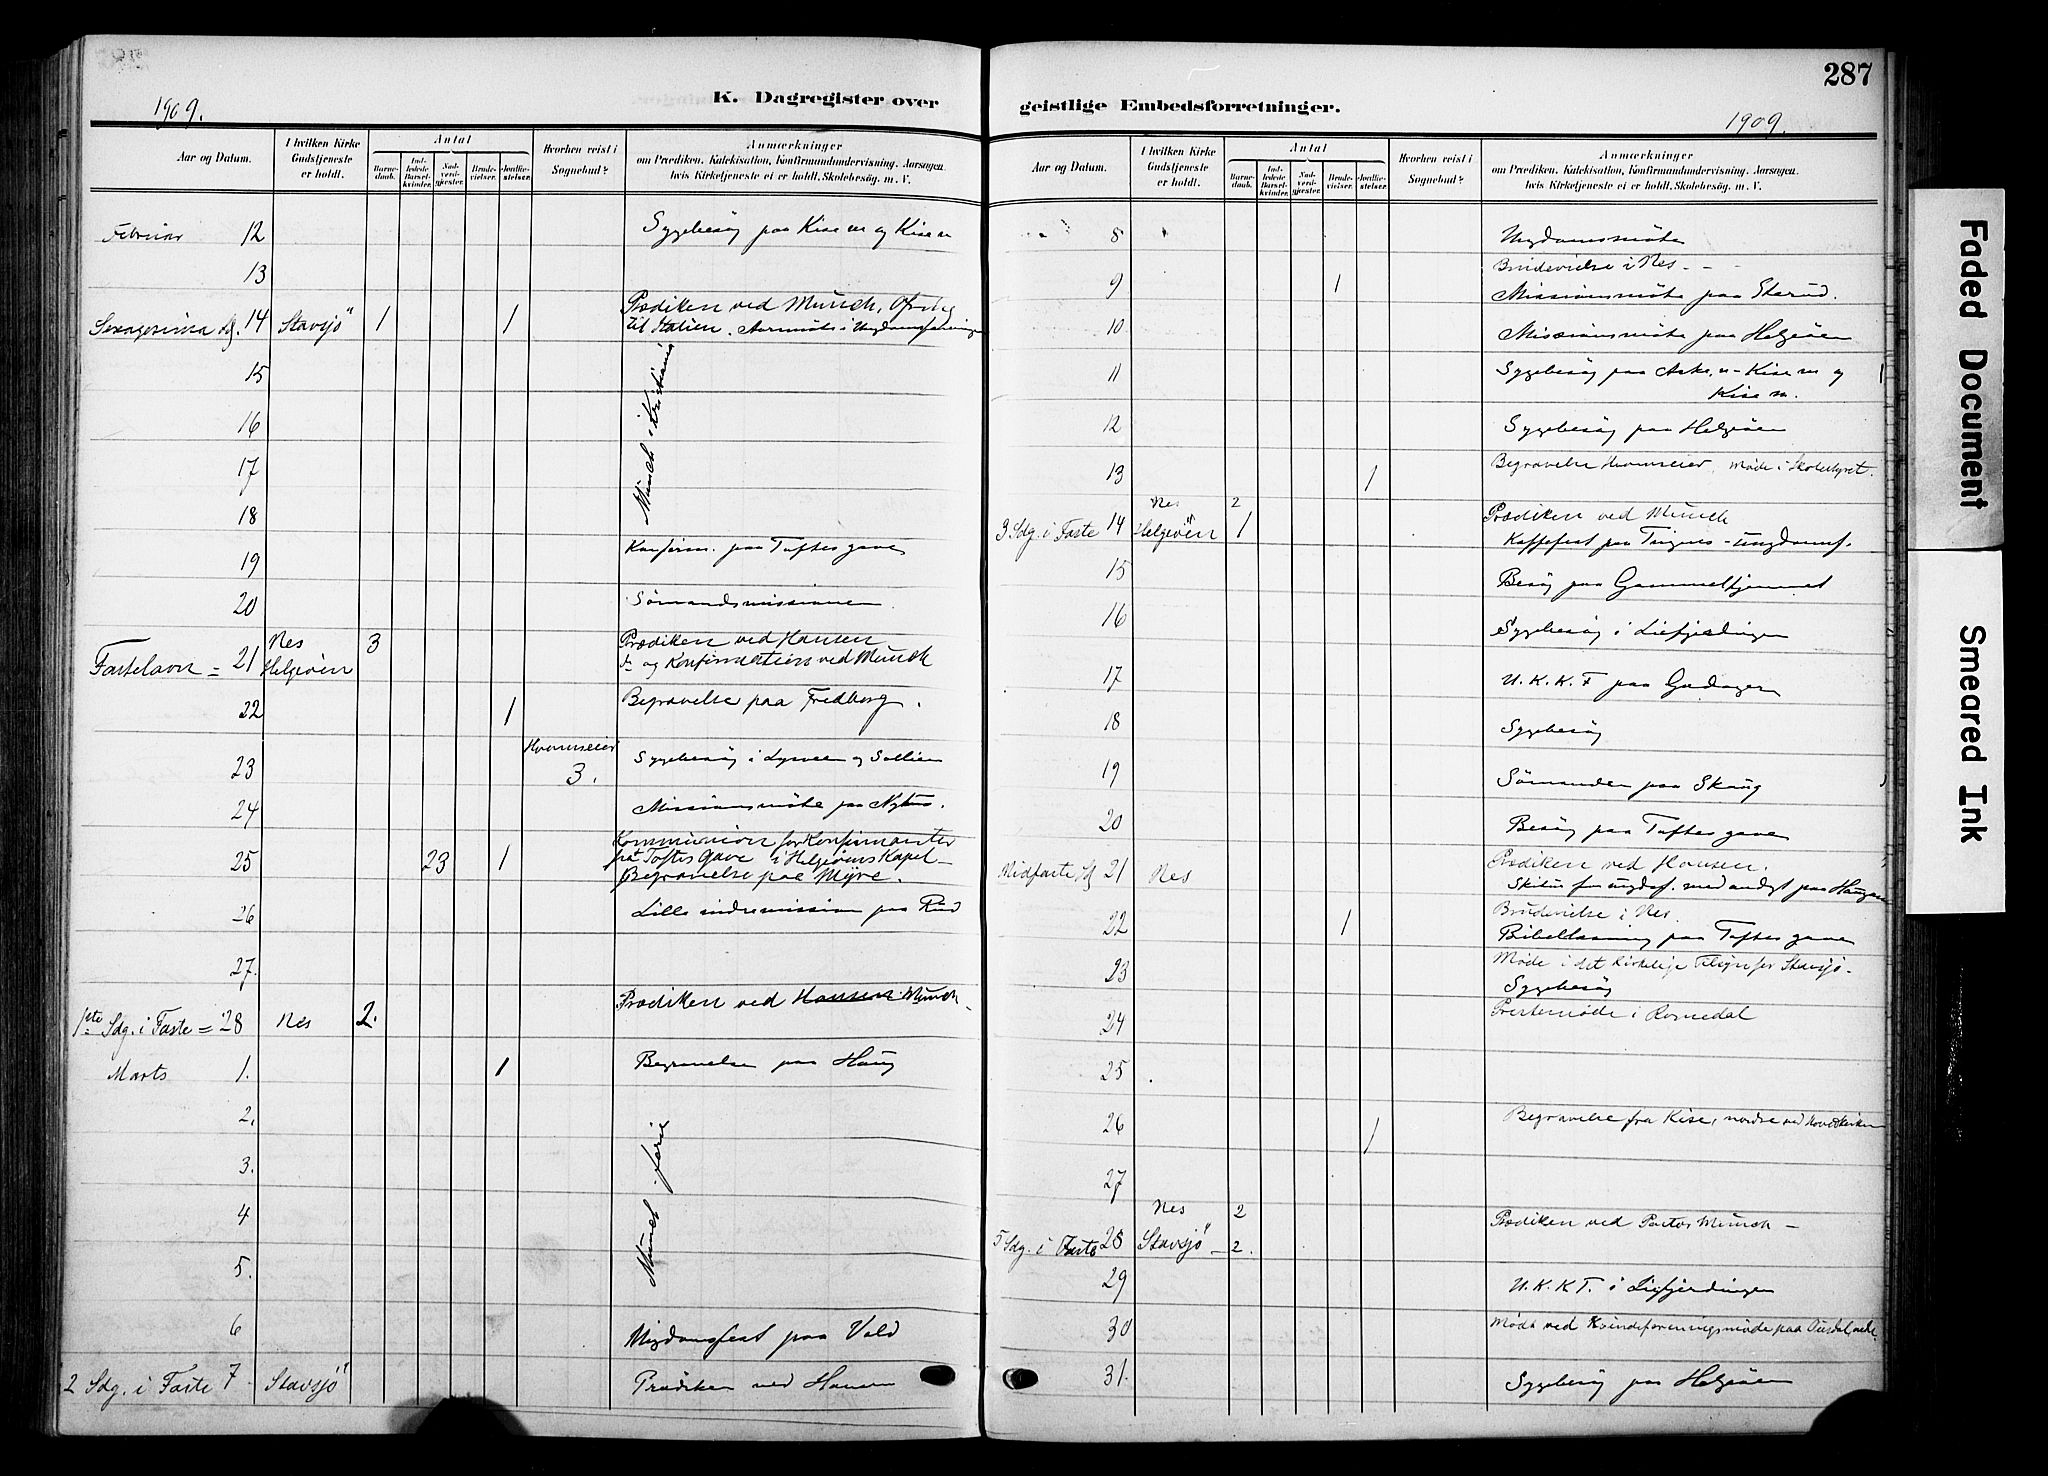 287
1909.
K. Dagregister over
geistlige Embedsforretninger.
1909.
Aar og Datum.
I hvilken Kirke Gudstjeneste er holdt.
Antal
Barnedaab.
Indledede Barselkvinder.
Nadverdgjester.
Brudevielser.
Jordfæstelser.
Hvorhen reist i Sognebud?
Anmærkninger
om Prædiken, Katekisation, Konfirmandundervisning, Aarsagen
hvis Kirketjeneste ei er holdt, Skolebesøg. m. V.
Februar 12 Sygebesøg paa Kise m og Kise n
13
Sexagesima sdg. 14 Stavsjö 1 1 Prædiken ved Munch,
til Italien. Aarsmöte i
15
16
17
Munch i Kristiania
18
19 Konfirm. paa Toftes gave
20 Sömandsmissionen
Fastelavn = 21 Nes 3 Prædiken ved Hansen
Helgeöen do og Konfirmation ved Munch
22 1 Begravelse paa Fredborg.
23 3. Sygebesøg i Lysveen og Sollien
24 Missionsmöte paa
25 23 1 Kommunion for Konfirmanter
fra Toftes Gave i Helgeöens Kapel
Begravelse paa Myre.
26 Lille indremission paa Rud
27.
1ste Sdg. i Faste = 28 Nes 2. Prædiken ved Hansen Munch
Marts 1. 1 Begravelse paa Haug
2.
3.
Munch ferie
4
5.
6 paa Vold
2 Sdg. i Faste 7 Stavsjö Prædiken ved Hansen
Aar og Datum.
I hvilken Kirke Gudstjeneste er holdt.
Antal
Barnedaab.
Indledede Barselkvinder.
Nadverdgjester.
Brudevielser.
Jordfæstelser.
Hvorhen reist i Sognebud?
Anmærkninger
om Prædiken, Katekisation, Konfirmandundervisning, Aarsagen
hvis Kirketjeneste ei er holdt, Skolebesøg. m. V.
8 Ungdomsmöte
9 1 Brudevielse i Nes
Missionsmöte paa Sterud.
10 Missionsmöte paa Helgeöen
11 Sygebesøg paa Aske, n - Kise m og
Kise n.
12 Sygebesøg paa Helgeöen
13 1 Begravelse Hvamseier. Møde i Skolestyret.
3 Sdg. i Faste 14 Nes 2 Prædiken ved Munch
Helgeöen 1 Kaffefest paa
15 Besøg paa Gammelhjemmet
16 Sygebesøg i Liefjerdingen
17 U.K.K.F paa
18 Sygebesøg
19 Sömanden paa Skaug
20 Besøg paa Toftes gave
Midfaste sdg 21 Nes Prædiken ved Hansen.
Skitur for ungdf. med andagt paa Haugen
22 1 Brudevielse i Nes.
Bibellæsning paa Toftes gave
23 Møde i det kirkelige Tilsyn for Stavsjö.
Sygebesøg
24 Prestemøde i Romedal
25
26 1 Begravelse fra Kise, nordre ved Hovedkirken
27
5 Sdg. i Faste 28 Nes 2 Prædiken ved Pastor Munch
Stavsjö 2.
29 U.K.K.F. i Liefjerdingen
30 Møde ved Kvindeforeningsmøde paa
31. Sygebesøg paa Helgeöen
Faded Document
Smeared Ink